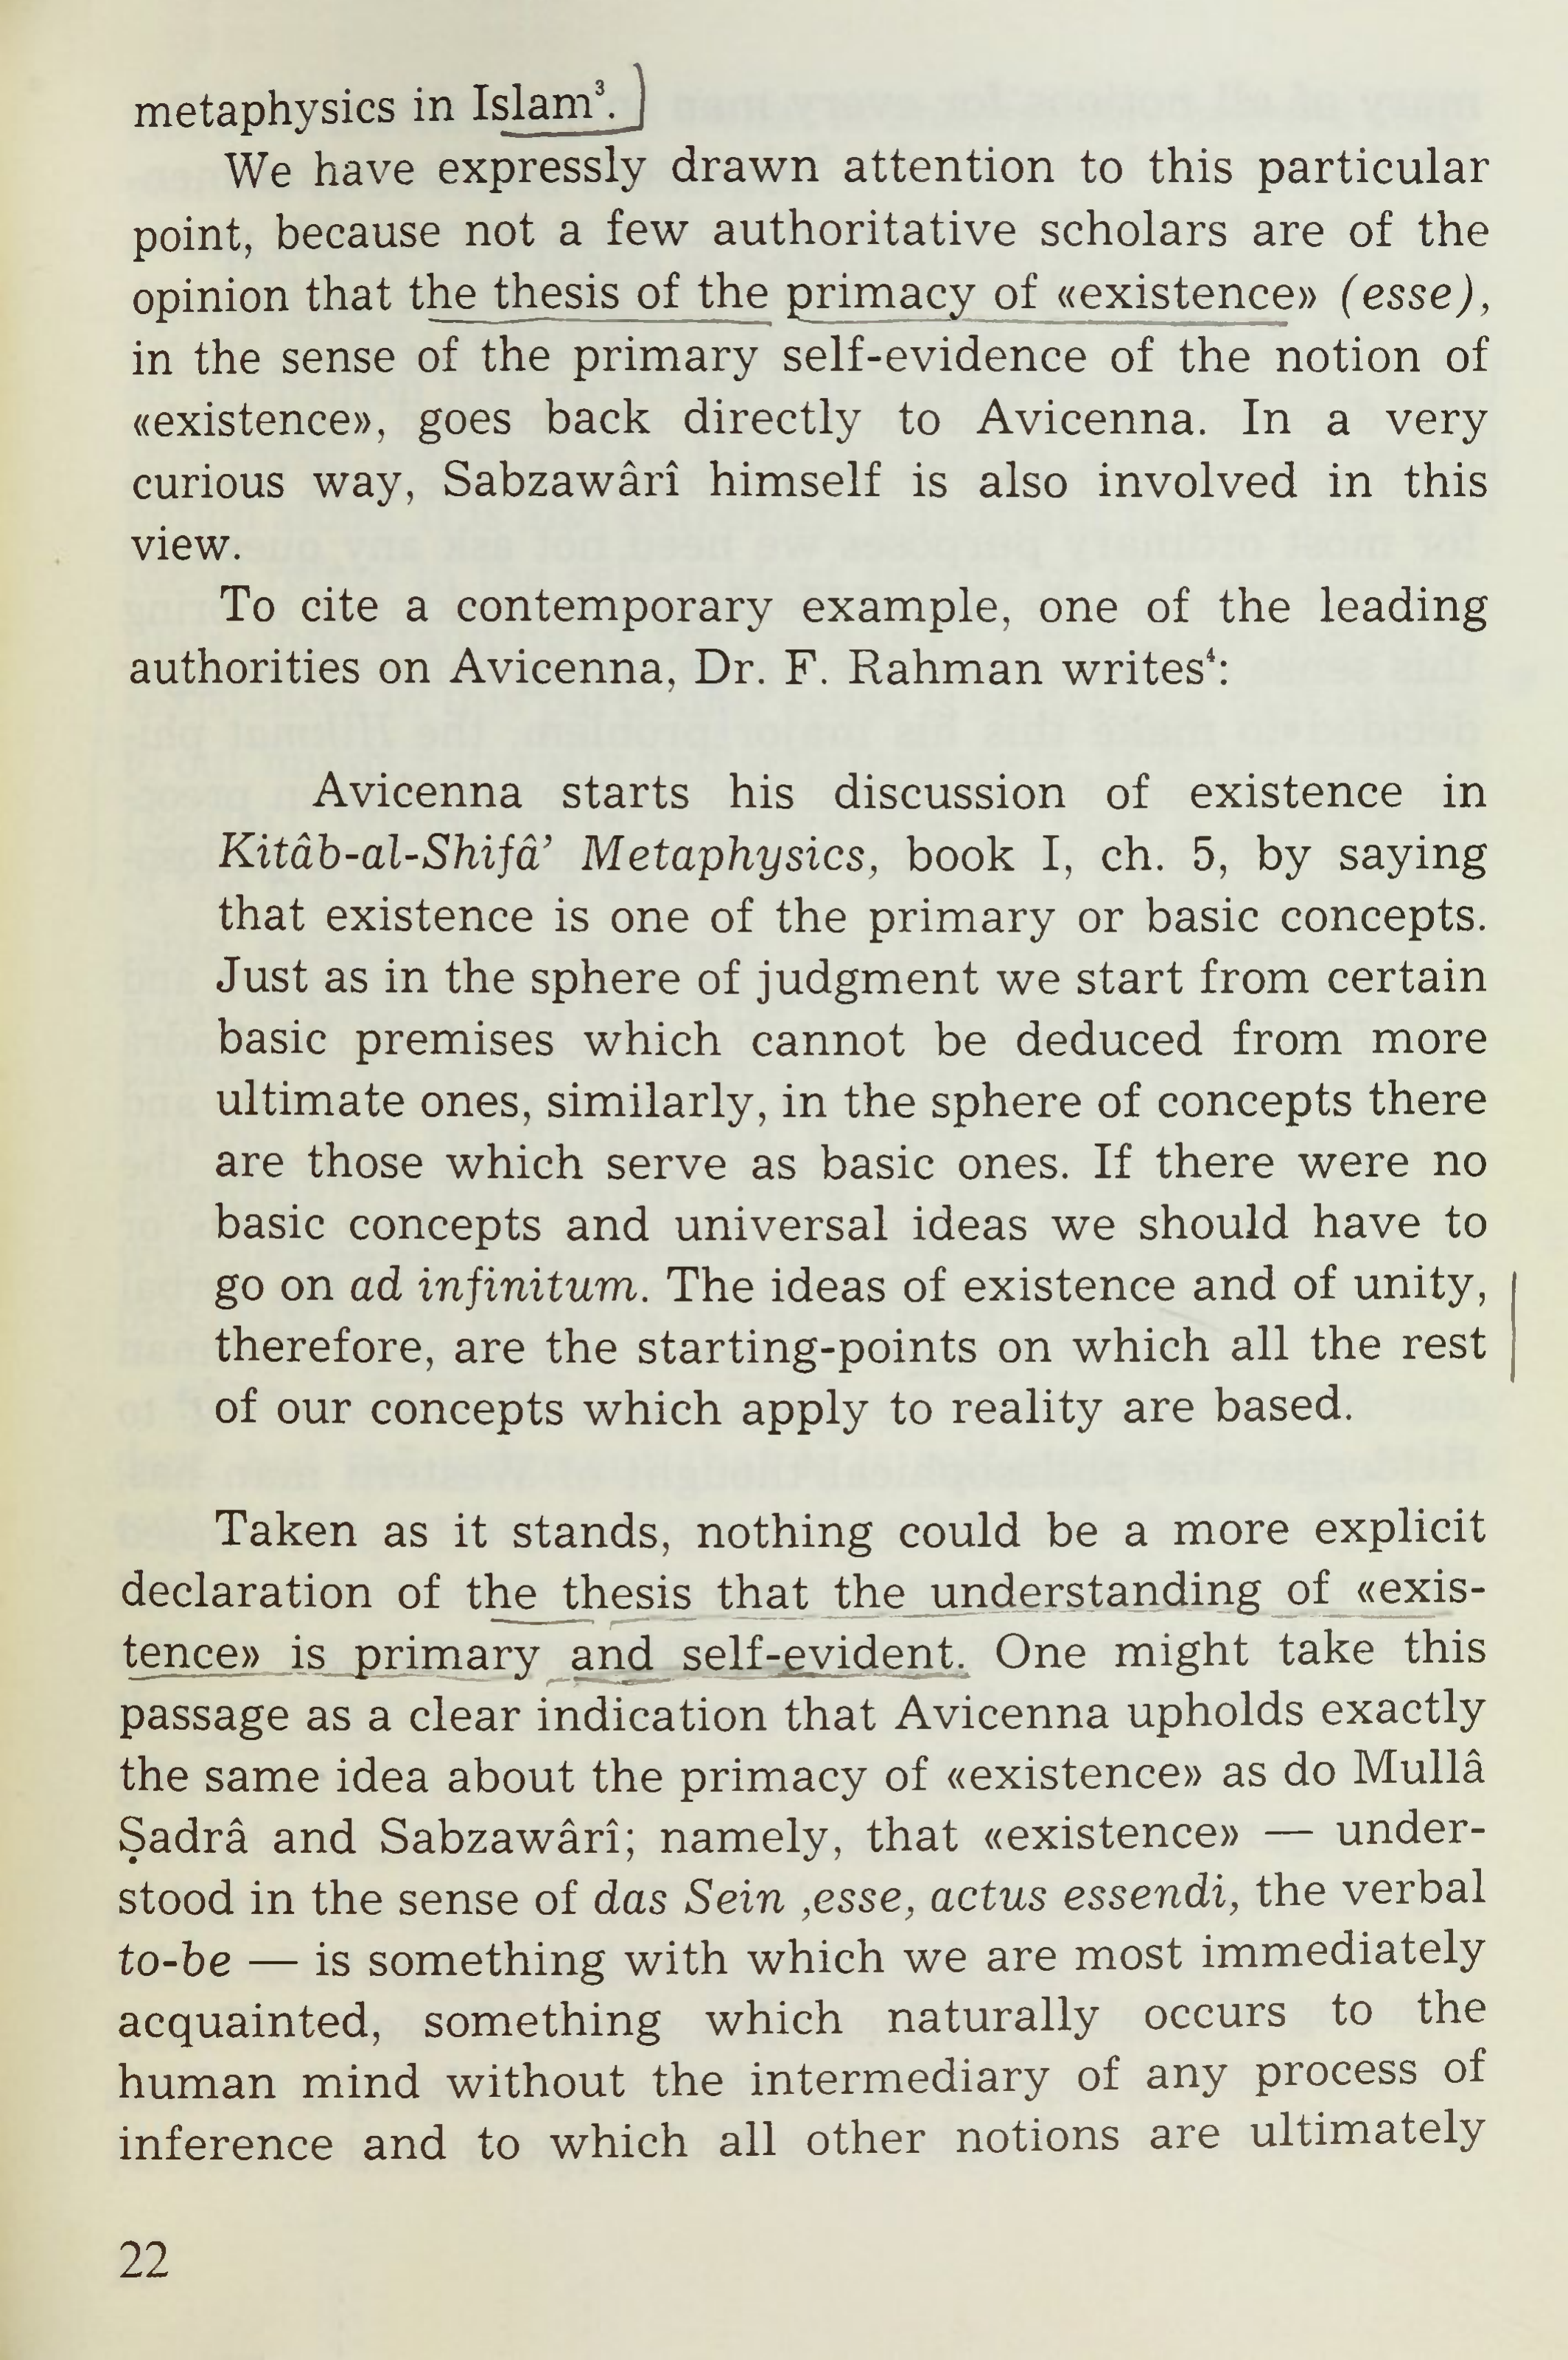 metaphysics in Islam³.
We have expressly drawn attention to this particular
point, because not a few authoritative scholars are of the
opinion that the thesis of the primacy of «existence» (esse),
in the sense of the primary self-evidence of the notion of
«existence», goes back directly to Avicenna. In a very
curious way, Sabzawârî himself is also involved in this
view.
To cite a contemporary example, one of the leading
authorities on Avicenna, Dr. F. Rahman writes⁴:
Avicenna starts his discussion of existence in
Kitâb-al-Shifâ’ Metaphysics, book I, ch. 5, by saying
that existence is one of the primary or basic concepts.
Just as in the sphere of judgment we start from certain
basic premises which cannot be deduced from more
ultimate ones, similarly, in the sphere of concepts there
are those which serve as basic ones. If there were no
basic concepts and universal ideas we should have to
go on ad infinitum. The ideas of existence and of unity,
therefore, are the starting-points on which all the rest
of our concepts which apply to reality are based.
Taken as it stands, nothing could be a more explicit
declaration of the thesis that the understanding of «exis-
tence» is primary and self-evident. One might take this
passage as a clear indication that Avicenna upholds exactly
the same idea about the primacy of «existence» as do Mullâ
Ṣadrâ and Sabzawârî; namely, that «existence» — under-
stood in the sense of das Sein ,esse, actus essendi, the verbal
to-be — is something with which we are most immediately
acquainted, something which naturally occurs to the
human mind without the intermediary of any process of
inference and to which all other notions are ultimately
22